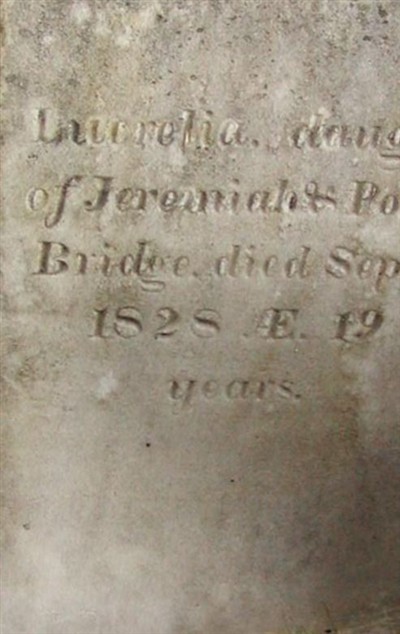 Lucretia. daug
of Jeremiah & Po
Bridge. died Sep
1828 Æ. 19
years.